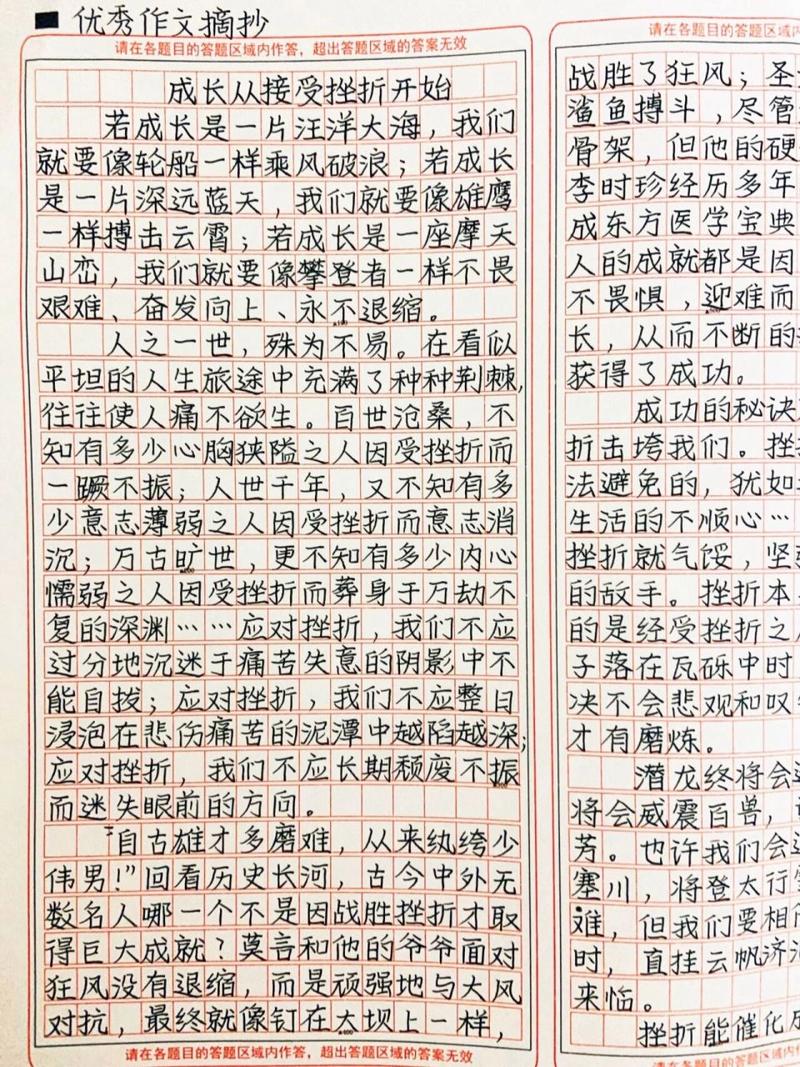 优秀作文摘抄
请在各题目的答题区域内作答，超出答题区域的答案无效
成长从接受挫折开始
若成长是一片汪洋大海，我们
就要像轮船一样乘风破浪；若成长
是一片深远蓝天，我们就要像雄鹰
一样搏击云霄；若成长是一座摩天
山峦，我们就要像攀登者一样不畏
艰难、奋发向上、永不退缩。
人之一世，殊为不易。在看似
平坦的人生旅途中充满了种种荆棘，
往往使人痛不欲生。百世沧桑，不
知有多少心胸狭隘之人因受挫折而
一蹶不振；人世千年，又不知有多
少意志薄弱之人因受挫折而意志消
沉；万古旷世，更不知有多少内心
懦弱之人因受挫折而葬身于万劫不
复的深渊……应对挫折，我们不应
过分地沉迷于痛苦失意的阴影中不
能自拔；应对挫折，我们不应整日
浸泡在悲伤痛苦的泥潭中越陷越深；
应对挫折，我们不应长期颓废不振
而迷失眼前的方向。
“自古雄才多磨难，从来纨绔少
伟男！”回看历史长河，古今中外无
数名人哪一个不是因战胜挫折才取
得巨大成就？莫言和他的爷爷面对
狂风没有退缩，而是顽强地与大风
对抗，最终就像钉在大坝上一样，
请在各题目的答题区域内作答，超出答题区域的答案无效
请在各题目的答题区域内
战胜了狂风；圣
鲨鱼搏斗，尽管
骨架，但他的硬
李时珍经历多年
成东方医学宝典
人的成就都是因
不畏惧，迎难而
长，从而不断的
获得了成功。
成功的秘诀
折击垮我们。挫
法避免的，犹如
生活的不顺心…
挫折就气馁，坚
的敌手。挫折本
的是经受挫折之
子落在瓦砾中时
决不会悲观和叹
才有磨炼。
潜龙终将会
将会威震百兽，
芳。也许我们会
塞川，将登太行
难，但我们要相
时，直挂云帆济
来临。
挫折能催化
请在各题目的答题区域